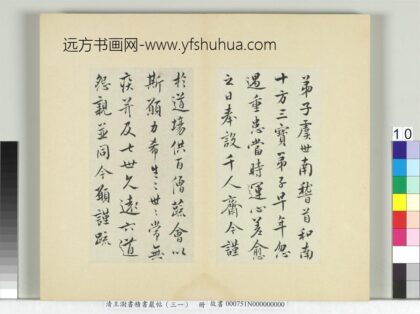 远方书画网-www.yfshuhua.com
弟子虞世南稽首和南
十方三寶弟子早年忽
遇重患當時運心差愈
之日奉設千人齋今謹
於道場供百僧蔬會以
斯願力希生〻世〻常無
疾并及七世久遠六道
怨親並同今願謹疏
清王澍書積書巖帖(三一) 冊 故書 000751N000000000